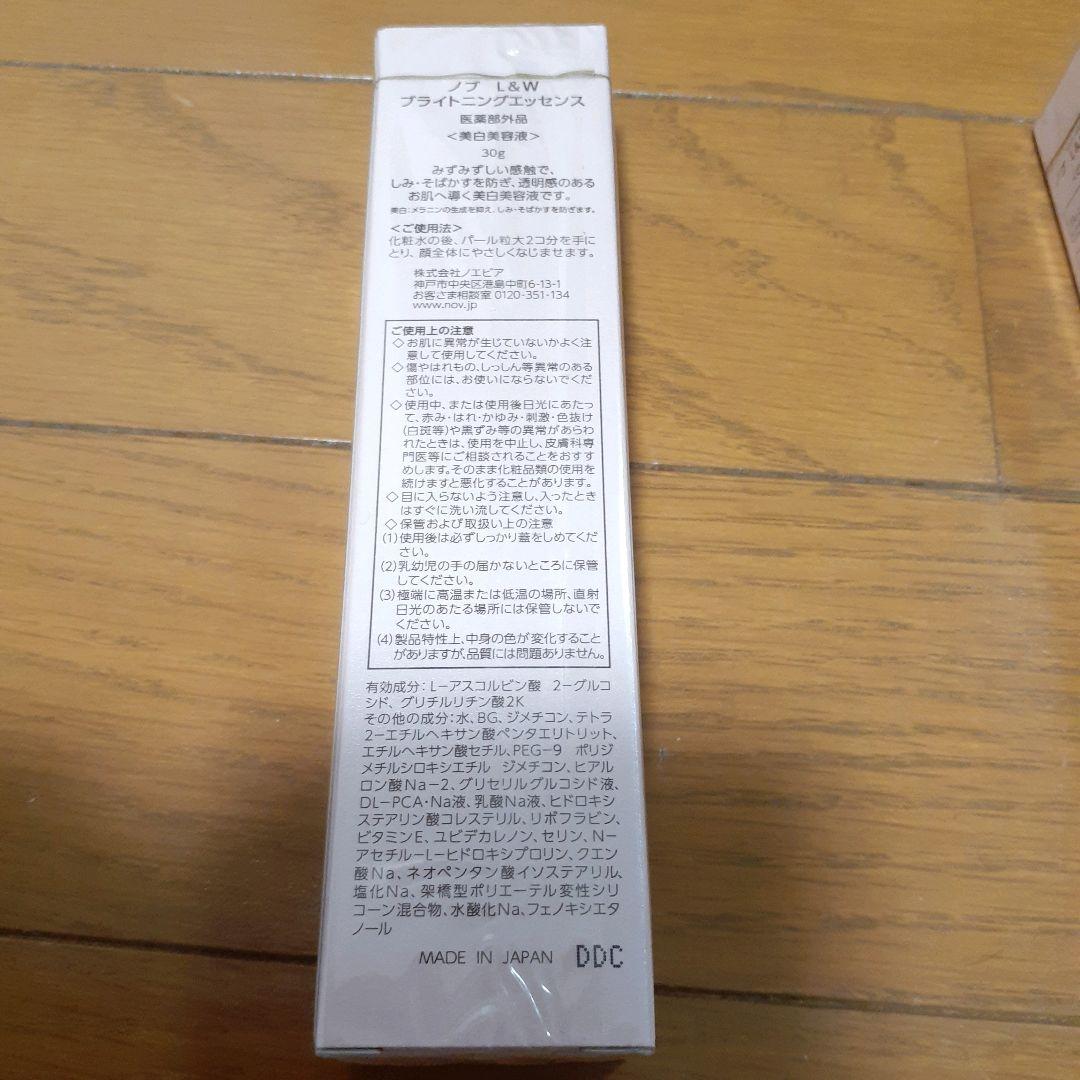 ノブ L&W
ブライトニングエッセンス
医薬部外品
<美白美容液>
30g
みずみずしい感触で、
しみ・そばかすを防ぎ、透明感のある
お肌へ導く美白美容液です。
美白：メラニンの生成を抑え、しみ・そばかすを防ぎます。
<ご使用法>
化粧水の後、パール粒大2コ分を手に
とり、顔全体にやさしくなじませます。
株式会社ノエビア
神戸市中央区港島中町6-13-1
お客さま相談室 0120-351-134
www.nov.jp
ご使用上の注意
◇お肌に異常が生じていないかよく注
意して使用してください。
◇傷やはれもの、しっしん等異常のある
部位には、お使いにならないでくだ
さい。
◇使用中、または使用後日光にあたっ
て、赤み・はれ・かゆみ・刺激・色抜け
(白斑等)や黒ずみ等の異常があらわ
れたときは、使用を中止し、皮膚科専
門医等にご相談されることをおすす
めします。そのまま化粧品類の使用を
続けますと悪化することがあります。
◇目に入らないよう注意し、入ったとき
はすぐに洗い流してください。
◇保管および取扱い上の注意
(1)使用後は必ずしっかり蓋をしめてくだ
さい。
(2)乳幼児の手の届かないところに保管
してください。
(3)極端に高温または低温の場所、直射
日光のあたる場所には保管しないで
ください。
(4)製品特性上、中身の色が変化すること
がありますが、品質には問題ありません。
有効成分：L-アスコルビン酸 2-グルコ
シド、グリチルリチン酸2K
その他の成分：水、BG、ジメチコン、テトラ
2-エチルヘキサン酸ペンタエリトリット、
エチルヘキサン酸セチル、PEG-9 ポリジ
メチルシロキシエチル ジメチコン、ヒアル
ロン酸Na-2、グリセリルグルコシド液、
DL-PCA・Na液、乳酸Na液、ヒドロキシ
ステアリン酸コレステリル、リボフラビン、
ビタミンE、ユビデカレノン、セリン、N-
アセチル-L-ヒドロキシプロリン、クエン
酸Na、ネオペンタン酸イソステアリル、
塩化Na、架橋型ポリエーテル変性シリ
コーン混合物、水酸化Na、フェノキシエタ
ノール
MADE IN JAPAN DDC